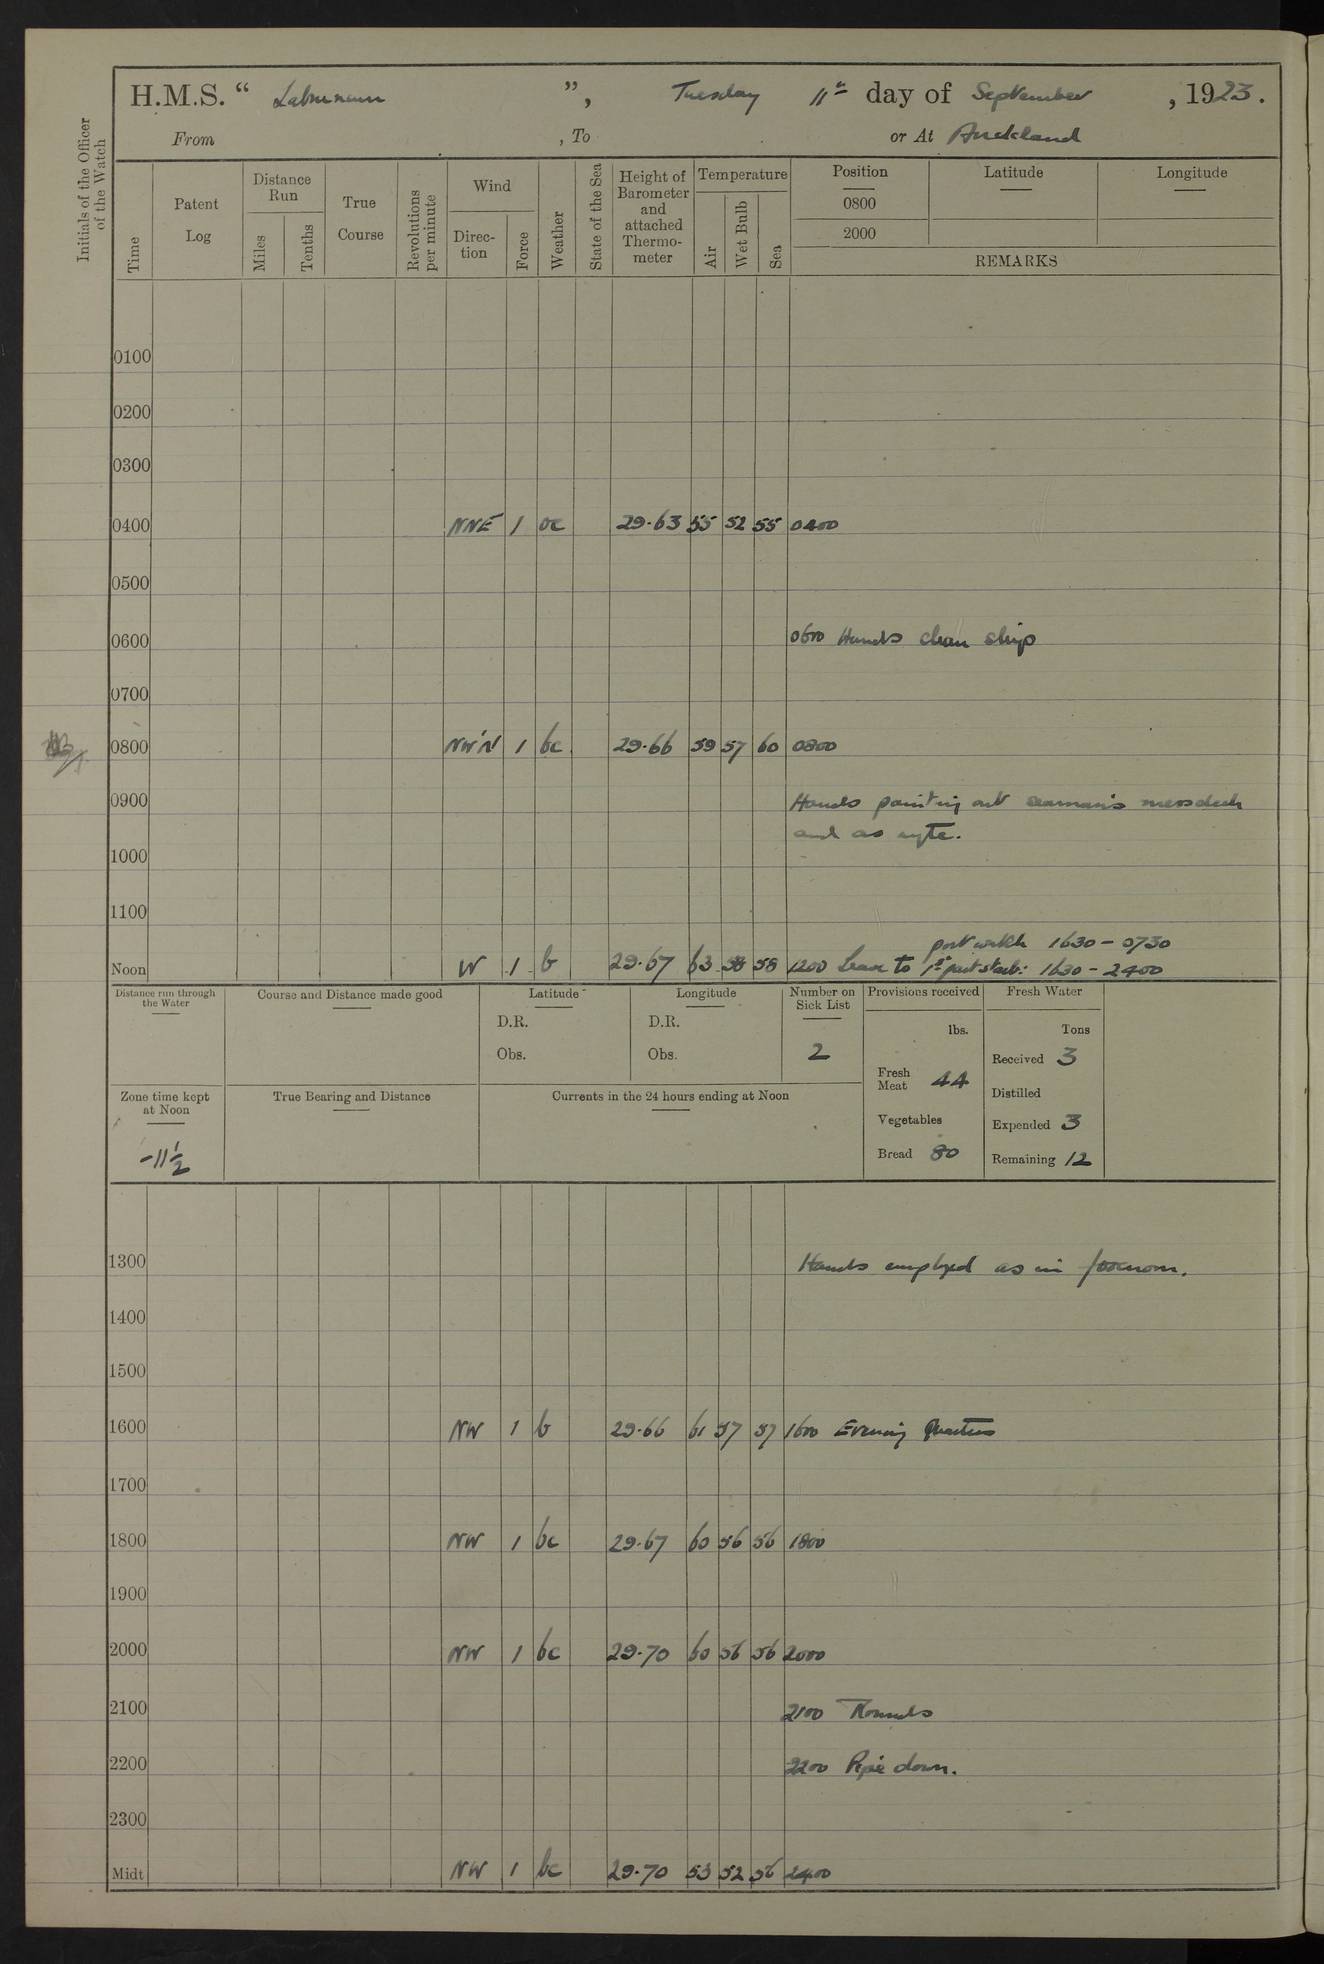 H.M.S. “ Laburnum ”, Tuesday 11th day of September, 1923.
From , To or At Auckland
Initials of the Officer of the Watch
Time
Patent Log
Distance Run
Miles
Tenths
True Course
Revolutions per minute
Wind
Direc-tion
Force
Weather
State of the Sea
Height of Barometer and attached Thermo-meter
Temperature
Air
Wet Bulb
Sea
Position Latitude Longitude
0800
2000
REMARKS
0100
0200
0300
0400 NNE 1 oc 29.63 55 52 55 0400
0500
0600 0600 Hands clean ship
0700
0800 NW'N 1 bc 29.66 59 57 60 0800
0900 Hands painting out seaman's messdeck
and as reqte.
1000
1100
port watch 1630 - 0730
Noon W 1 b 29.67 63 58 58 1200 Leave to 1st part starb: 1630 - 2400
Distance run through the Water
Course and Distance made good
Latitude
D.R.
Obs.
Longitude
D.R.
Obs.
Number on Sick List
2
Provisions received
lbs.
Fresh Meat 44
Vegetables
Bread 80
Fresh Water
Tons
Received 3
Distilled
Expended 3
Remaining 12
Zone time kept at Noon
-11½
True Bearing and Distance
Currents in the 24 hours ending at Noon
1300 Hands employed as in forenoon.
1400
1500
1600 NW 1 b 29.66 61 57 57 1600 Evening Quarters
1700
1800 NW 1 bc 29.67 60 56 56 1800
1900
2000 NW 1 bc 29.70 60 56 56 2000
2100 2100 Rounds
2200 2200 Pipe down.
2300
Midt NW 1 bc 29.70 53 52 56 2400